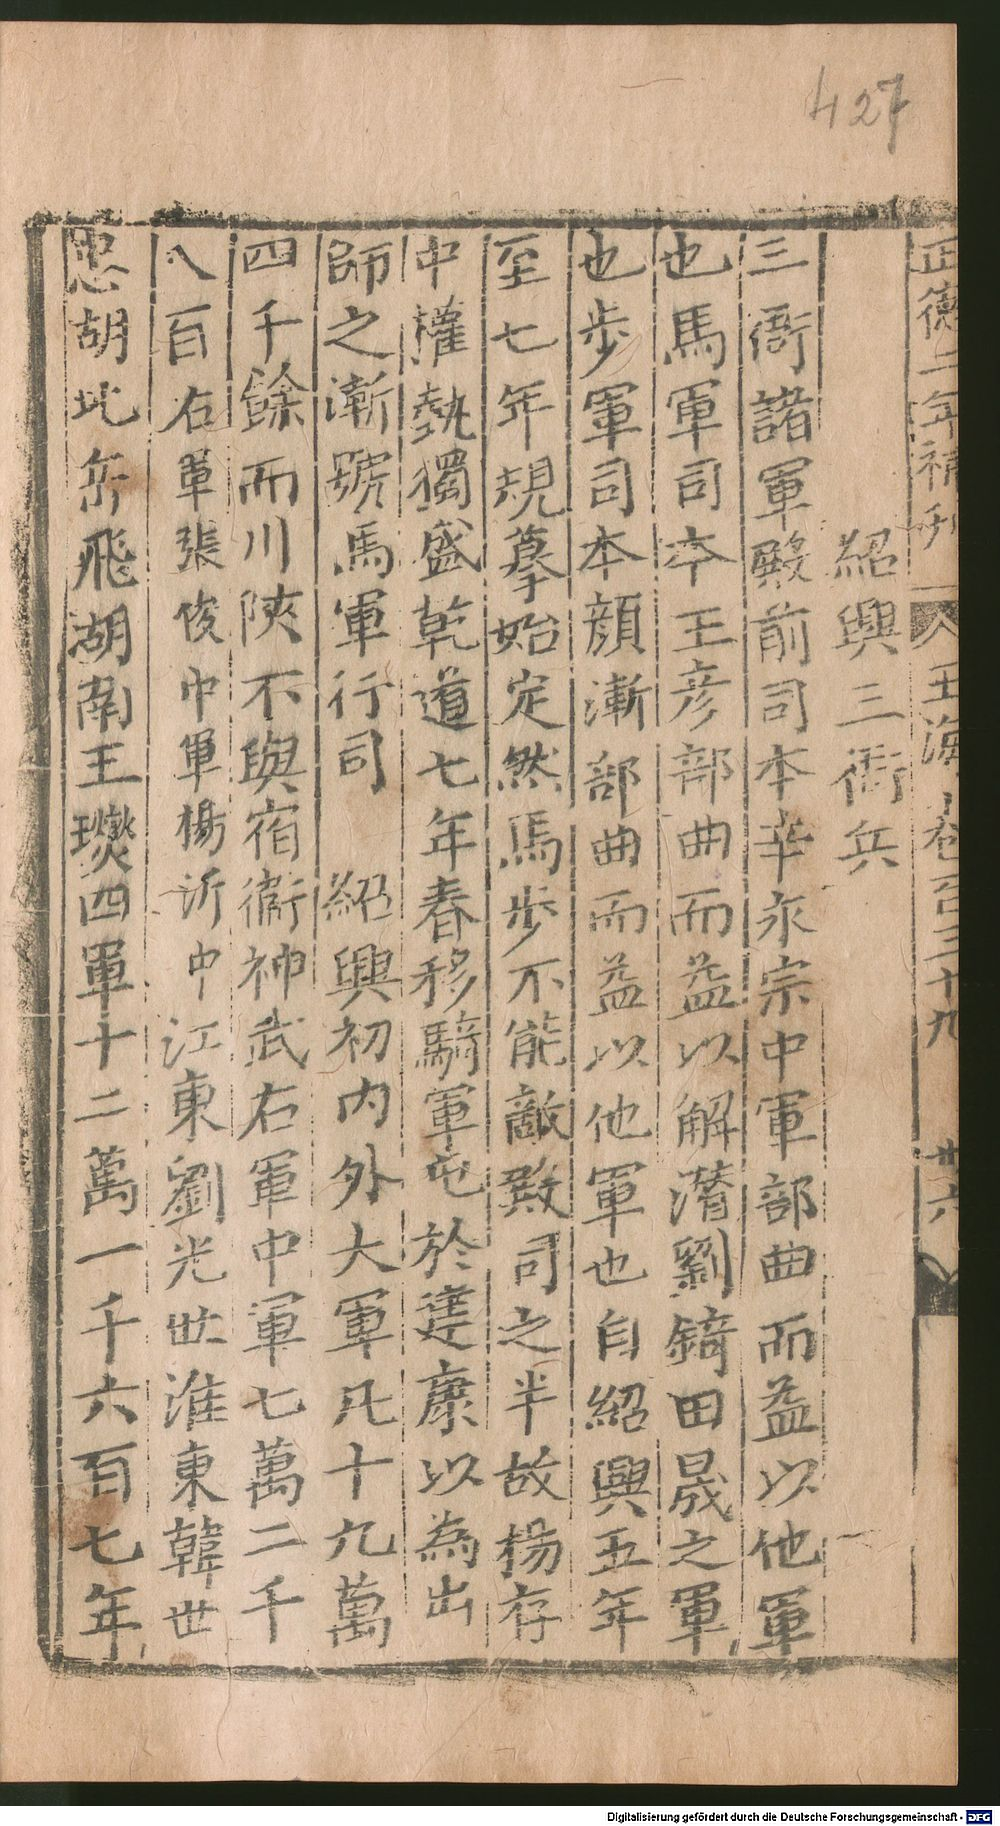 427
正德二年補刊 玉海卷百三十九 廿六
紹興三衙兵
三衙諸軍殿前司本辛永宗中軍部曲而益以他軍
也馬軍司本王彦部曲而益以解潛劉錡田晟之軍
也歩軍司本顔漸部曲而益以他軍也自紹興五年
至七年規摹始定然馬歩不能敵殿司之半故楊存
中權勢獨盛乾道七年春移騎軍屯於建康以為出
師之漸號馬軍行司 紹興初内外大軍凡十九萬
四千餘而川陝不與宿衞神武右軍中軍七萬二千
八百右軍張俊中軍楊沂中江東劉光世淮東韓世
忠湖北岳飛湖南王𤫉四軍十二萬一千六百七年
Digitalisierung gefördert durch die Deutsche Forschungsgemeinschaft - DFG